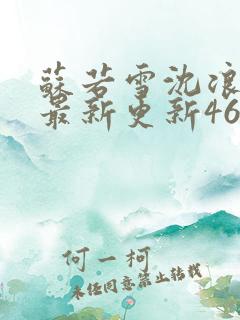 蘇若雪沈浪
最新更新46
何一柯
未经同意禁止转载